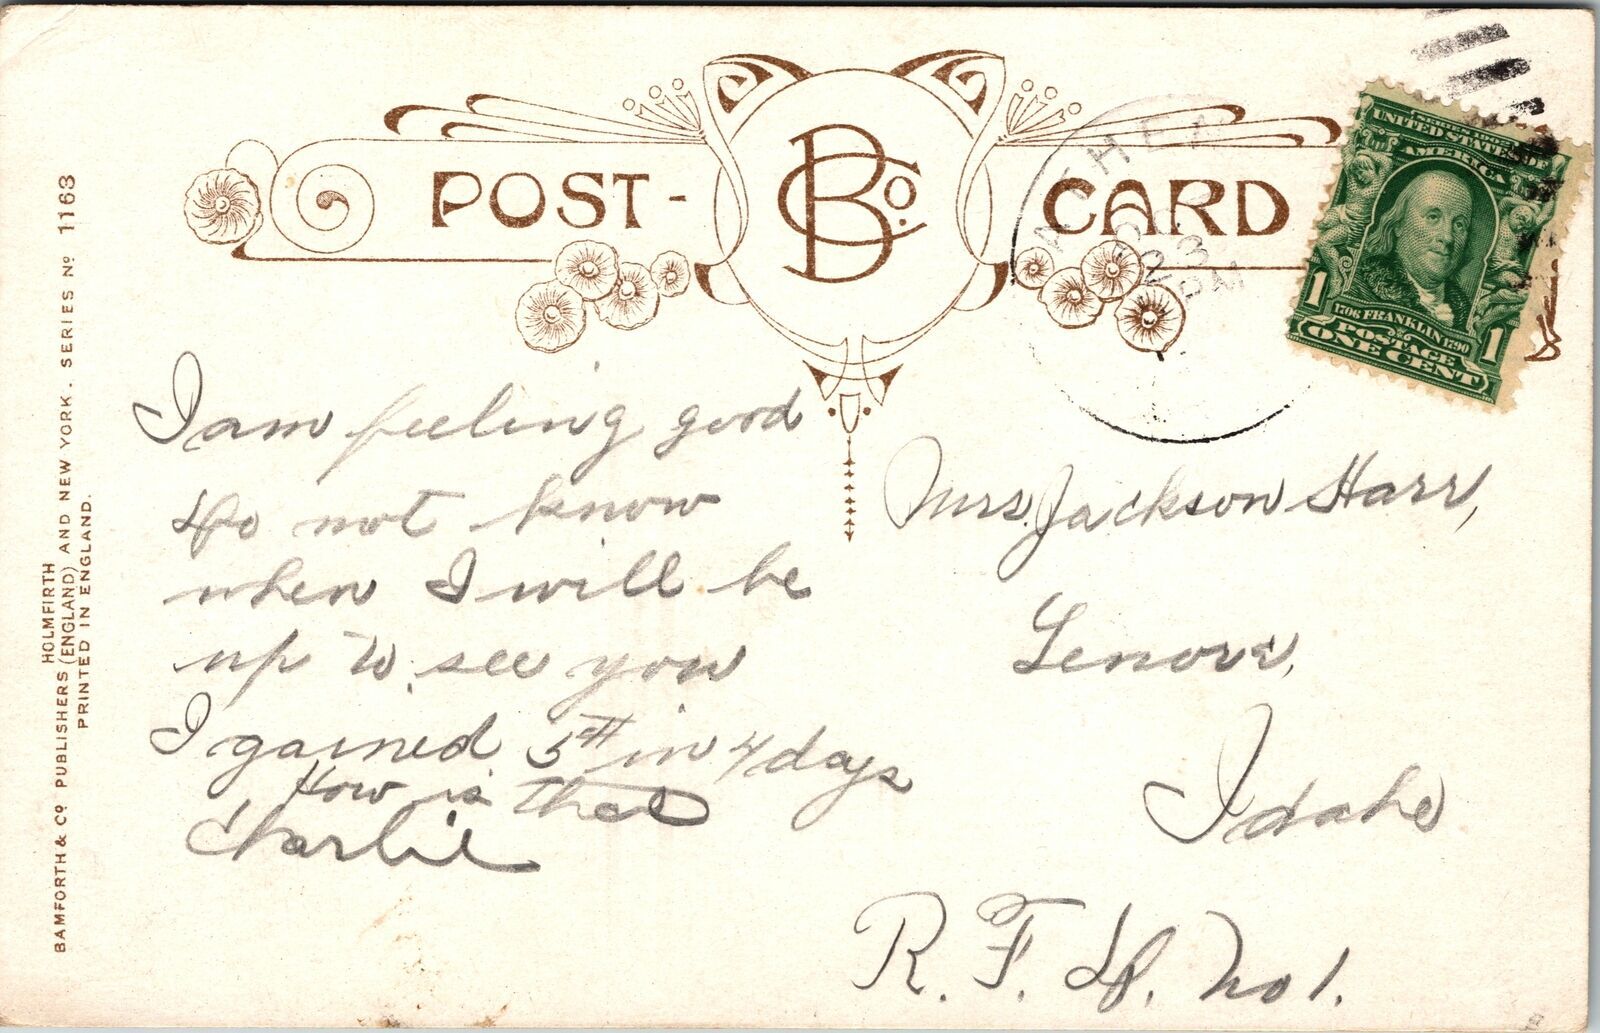 POST-CARD
BCo.
HOLMFIRTH
BAMFORTH & Co PUBLISHERS (ENGLAND) AND NEW YORK. SERIES No 1163
PRINTED IN ENGLAND.
SERIES 1902
UNITED STATES OF
AMERICA
1706 FRANKLIN 1790
POSTAGE
1 ONE CENT 1
3
PM
I am feeling good
Do not know
when I will be
up to see you
I gained 5# in 4 days
How is that
Charlie
Mrs. Jackson Harr,
Lenore,
Idaho
R. F. D. No 1.